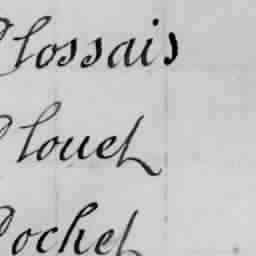 Clossais
Clouet
Cochet